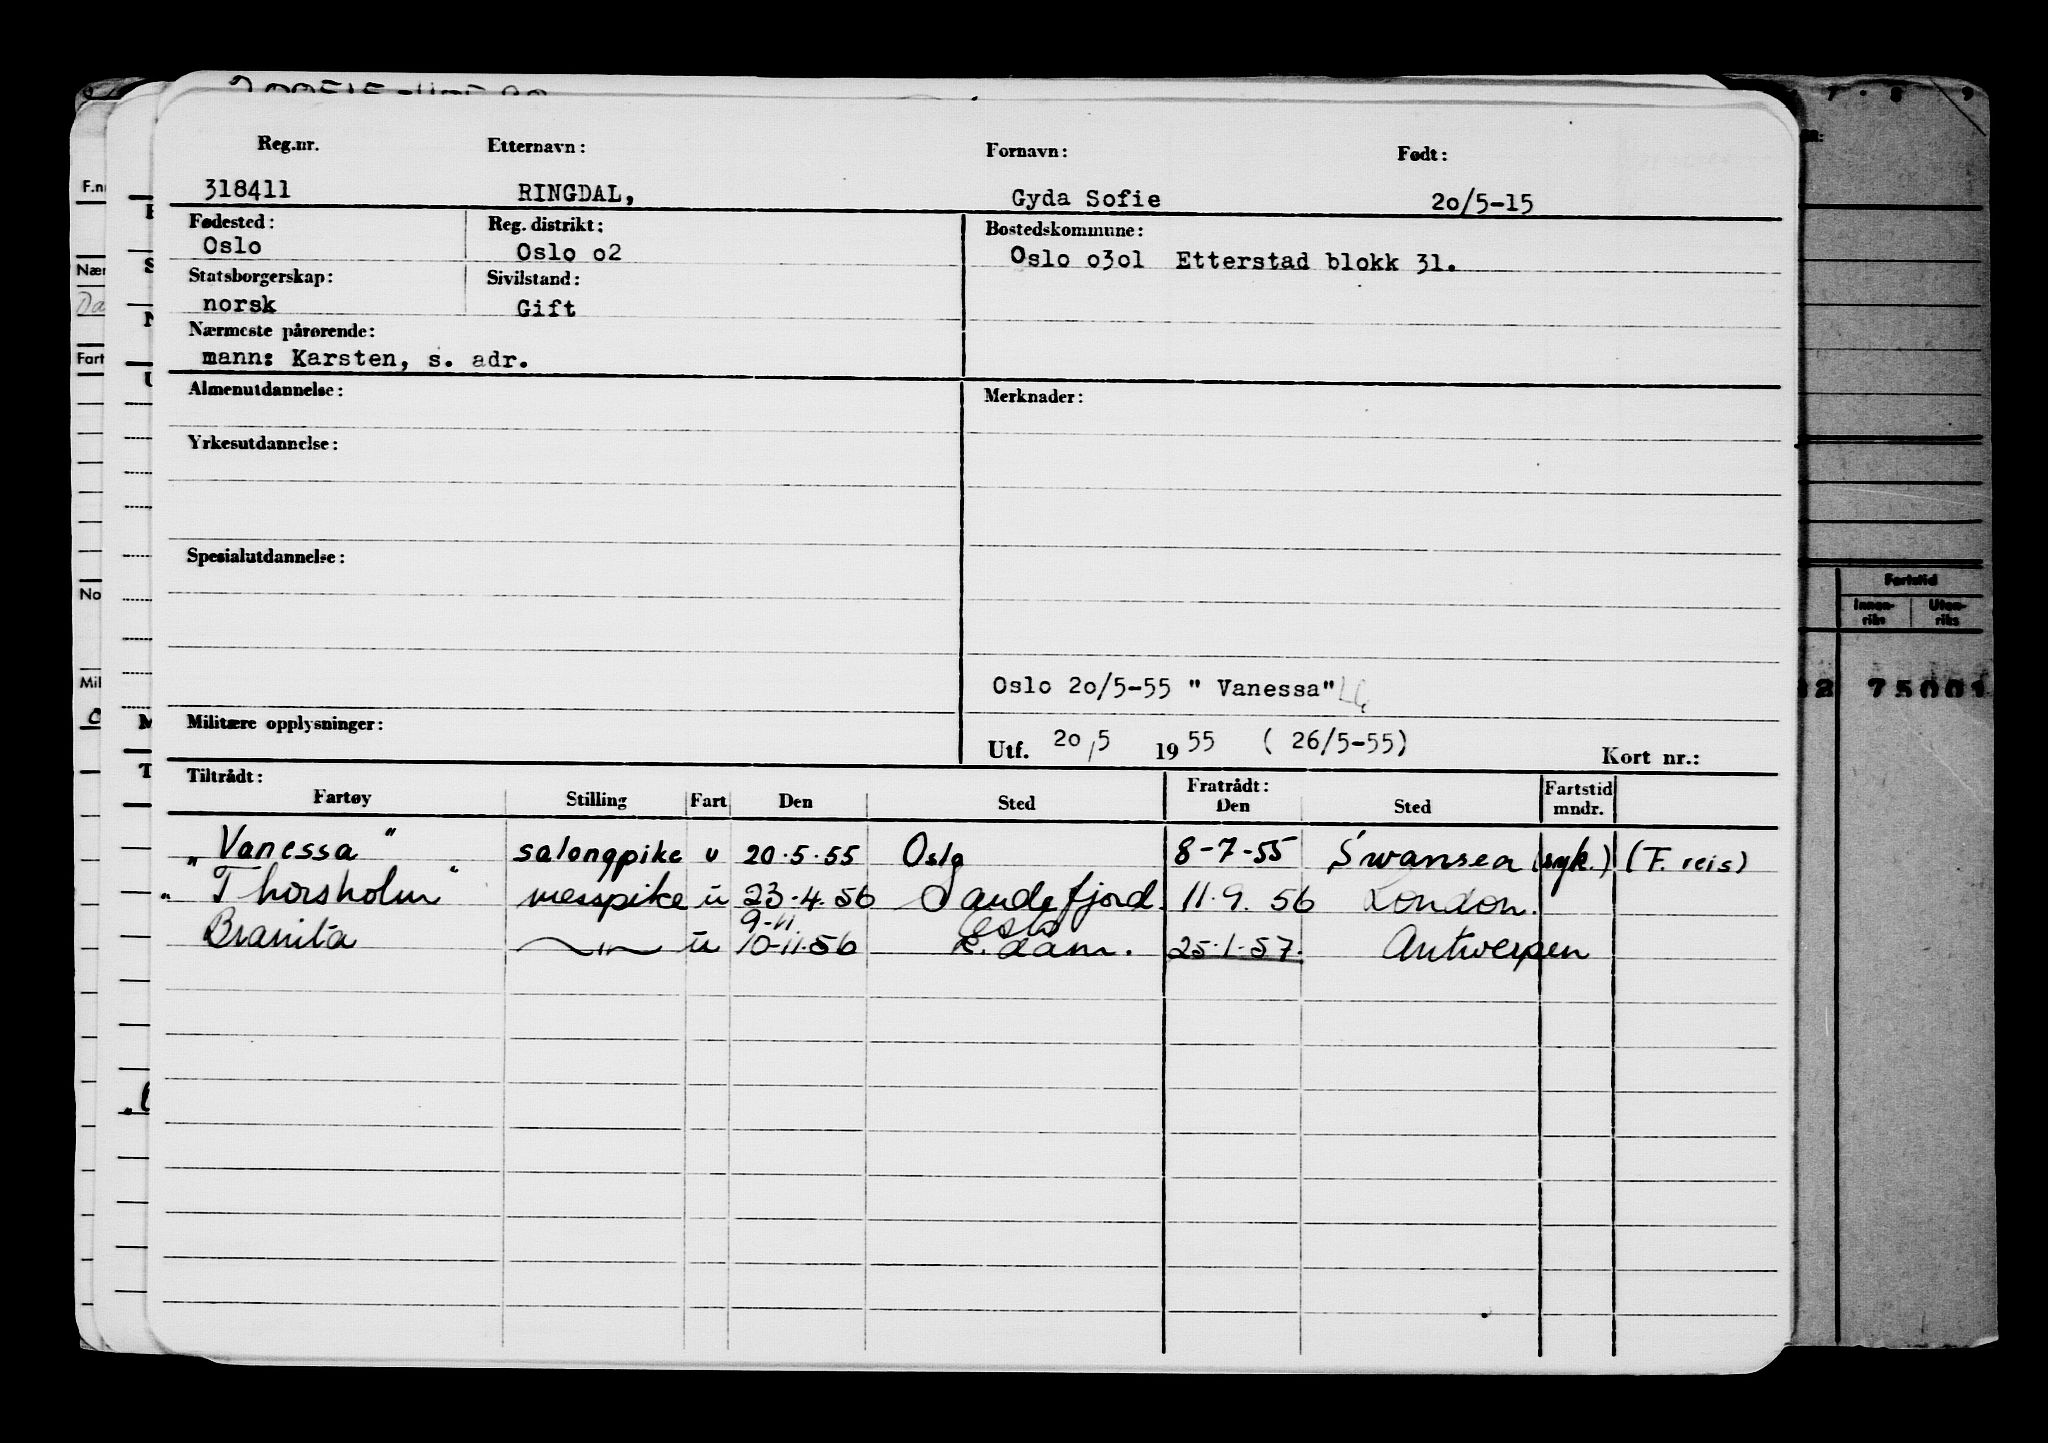 Reg.nr. Etternavn: Fornavn: Født:
318411 RINGDAL, Gyda Sofie 20/5-15
Fødested: Reg. distrikt: Bostedskommune:
Oslo Oslo o2 Oslo o3o1 Etterstad blokk 31.
Statsborgerskap: Sivilstand:
norsk Gift
Nærmeste pårørende:
mann: Karsten, s. adr.
Almenutdannelse: Merknader:
Yrkesutdannelse:
Spesialutdannelse:
Oslo 20/5-55 " Vanessa"
Militære opplysninger:
Utf. 20/5 1955 ( 26/5-55) Kort nr.:
Tiltrådt: Fratrådt: Fartstid
Fartøy Stilling Fart Den Sted Den Sted mndr.
„Vanessa" salongpike u 20.5.55 Oslo 8-7-55 Swansea (syk.) (F. reis)
„Thorsholm" messpike u 23.4.56 Sandefjord 11.9.56 London.
9-11 Oslo
Branita —"— u 10-11-56 R.dam. 25.1.57. Antwerpen
F.n
Nær
Fart
No
Mil
Fartstid
Innen-riks Uten-riks
12 75001